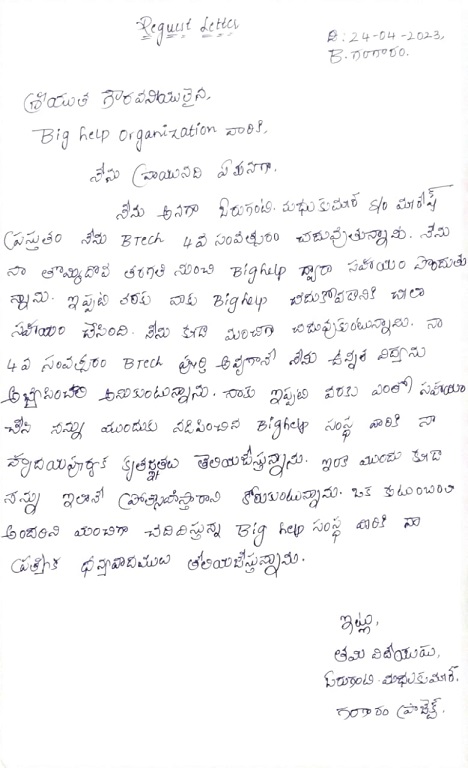 Request Letter
తే: 24-04-2023,
B. గంగారం.
శ్రీయుత గౌరవనీయులైన,
Big help organization వారికి,
నేను వ్రాయునది ఏమనగా,
నేను అనగా ఏరుగంటి. మధుకుమార్ S/o మారేష్
ప్రస్తుతం నేను BTech 4వ సంవత్సరం చదువుతున్నాను. నేను
నా తొమ్మిదొవ తరగతి నుంచి Bighelp ద్వారా సహాయం పొందుతు
న్నాను. ఇప్పటి వరకు నాకు Bighelp చదుకోవడానికి చాలా
సహాయం చేసింది. నేను కూడా మంచిగా చదువుకుంటున్నాను. నా
4వ సంవత్సరం BTech పూర్తి అవ్వగానే నేను ఉన్నత విద్యను
అభ్యసించాలి అనుకుంటున్నాను. నాకు ఇప్పటి వరకు ఎంతో సహాయం
చేసి నన్ను ముందుకు నడిపించిన Bighelp సంస్థ వారికి నా
హృదయపూర్వక కృతజ్ఞతలు తెలియజేస్తున్నాను. ఇంకా ముందు కూడా
నన్ను ఇలానే ప్రోత్సహిస్తారాని కోరుకుంటున్నాను. ఒక కుటుంబంలా
అందరిని మంచిగా చదివిస్తున్న Big help సంస్థ వారికి నా
ప్రత్యేక ధన్యవాదములు తెలియజేస్తున్నాను.
ఇట్లు,
తమ విదేయుడు,
ఏరుగంటి. మధుకుమార్.
గంగారం ప్రాజెక్ట్.